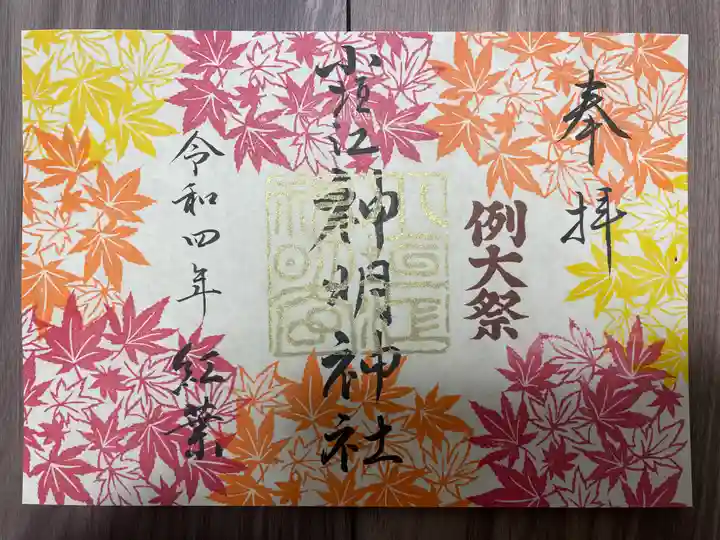 奉拝
例大祭
小垣江神明神社
令和四年 紅葉